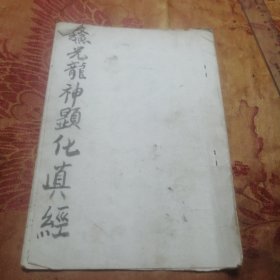 光龍神顯化真經